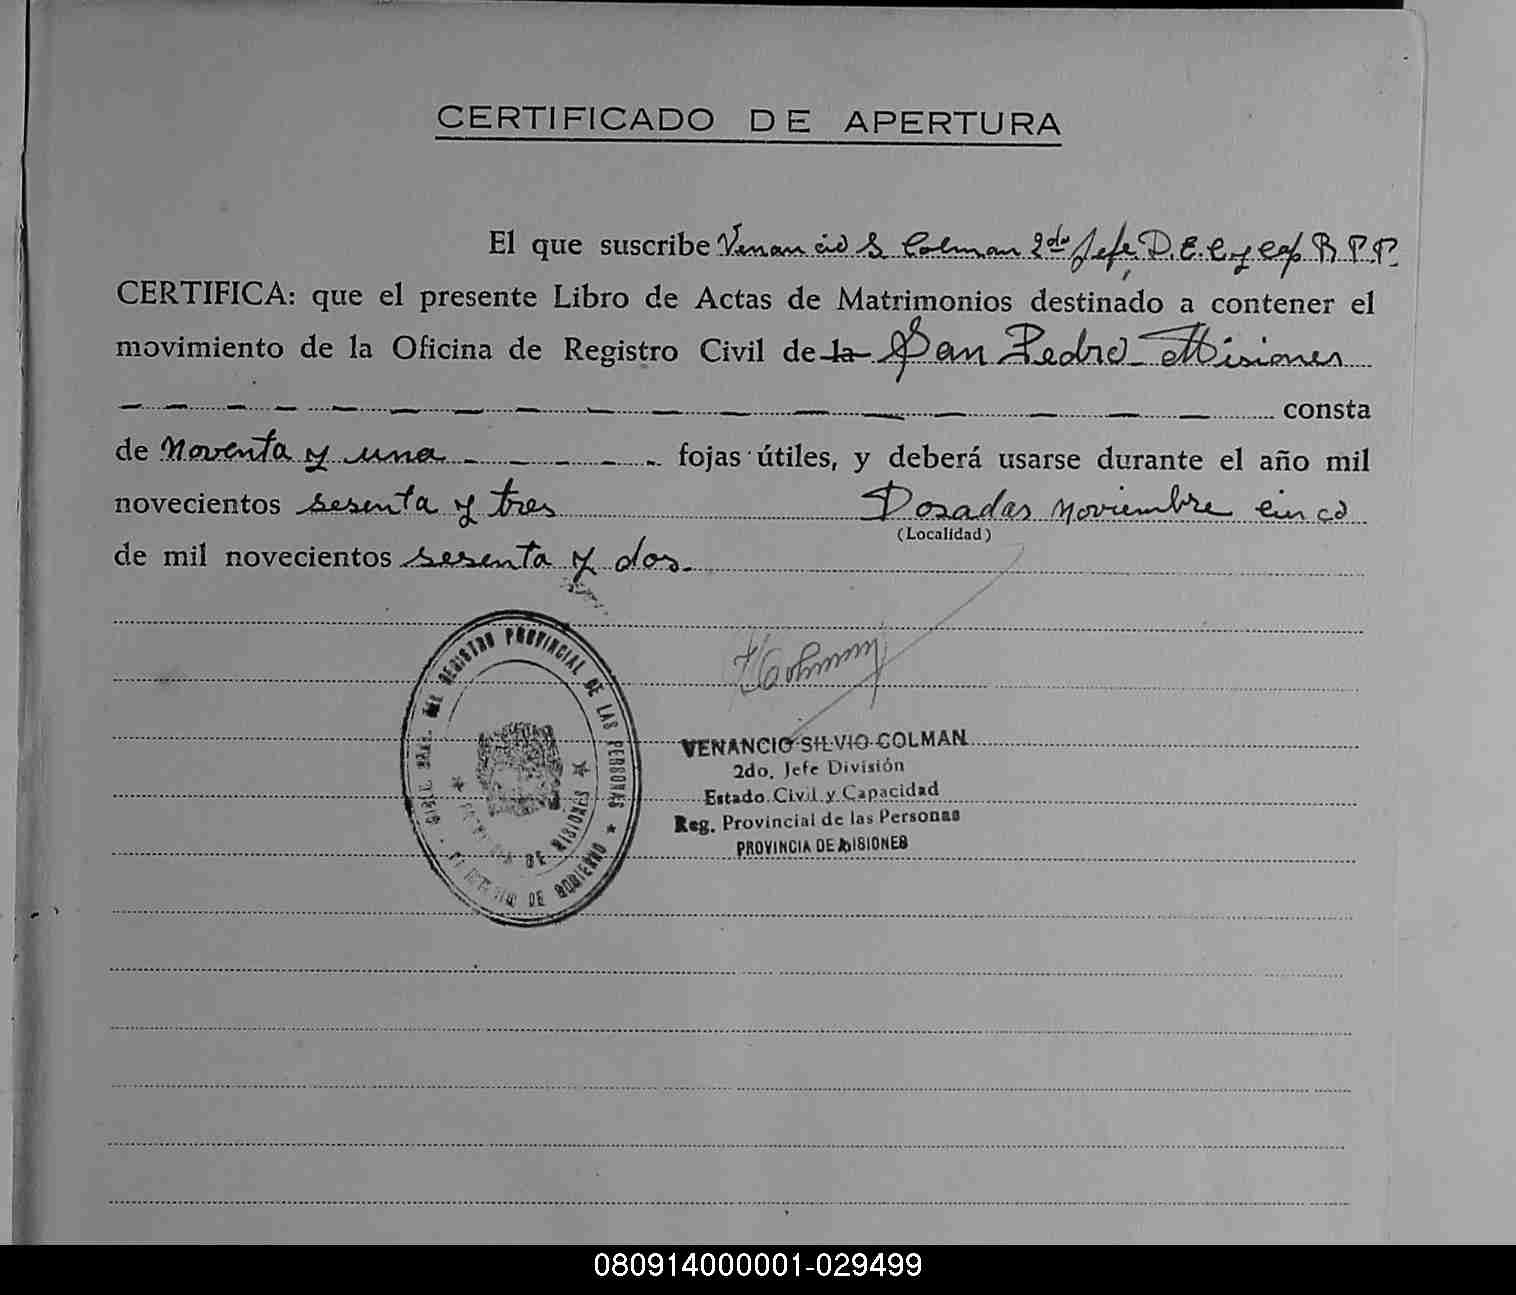 CERTIFICADO DE APERTURA
El que suscribe Venancio S. Colman 2do Jefe D. E. C. y Cap R P P.
CERTIFICA: que el presente Libro de Actas de Matrimonios destinado a contener el
movimiento de la Oficina de Registro Civil de la San Pedro - Misiones
consta
de noventa y una fojas útiles, y deberá usarse durante el año mil
novecientos sesenta y tres Posadas noviembre cinco
(Localidad)
de mil novecientos sesenta y dos.
DEL REGISTRO PROVINCIAL DE LAS PERSONAS
DE MISIONES
DE GOBIERNO
VENANCIO SILVIO COLMAN
2do. Jefe División
Estado Civil y Capacidad
Reg. Provincial de las Personas
PROVINCIA DE MISIONES
080914000001-029499